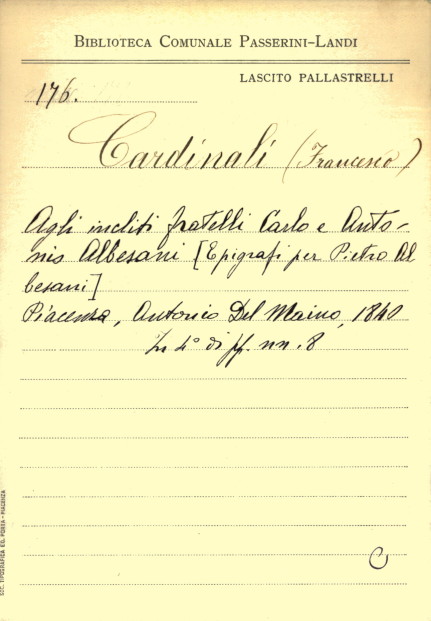 BIBLIOTECA COMUNALE PASSERINI-LANDI
LASCITO PALLASTRELLI
176.
Cardinali (Francesco)
Agli incliti fratelli Carlo e Anto-
nio Albesani [Epigrafi per Pietro Al
besani]
Piacenza, Antonio Del Maino, 1840
In 4° di pp. nn. 8
C
SOC. TIPOGRAFICA ED. PORTA - PIACENZA